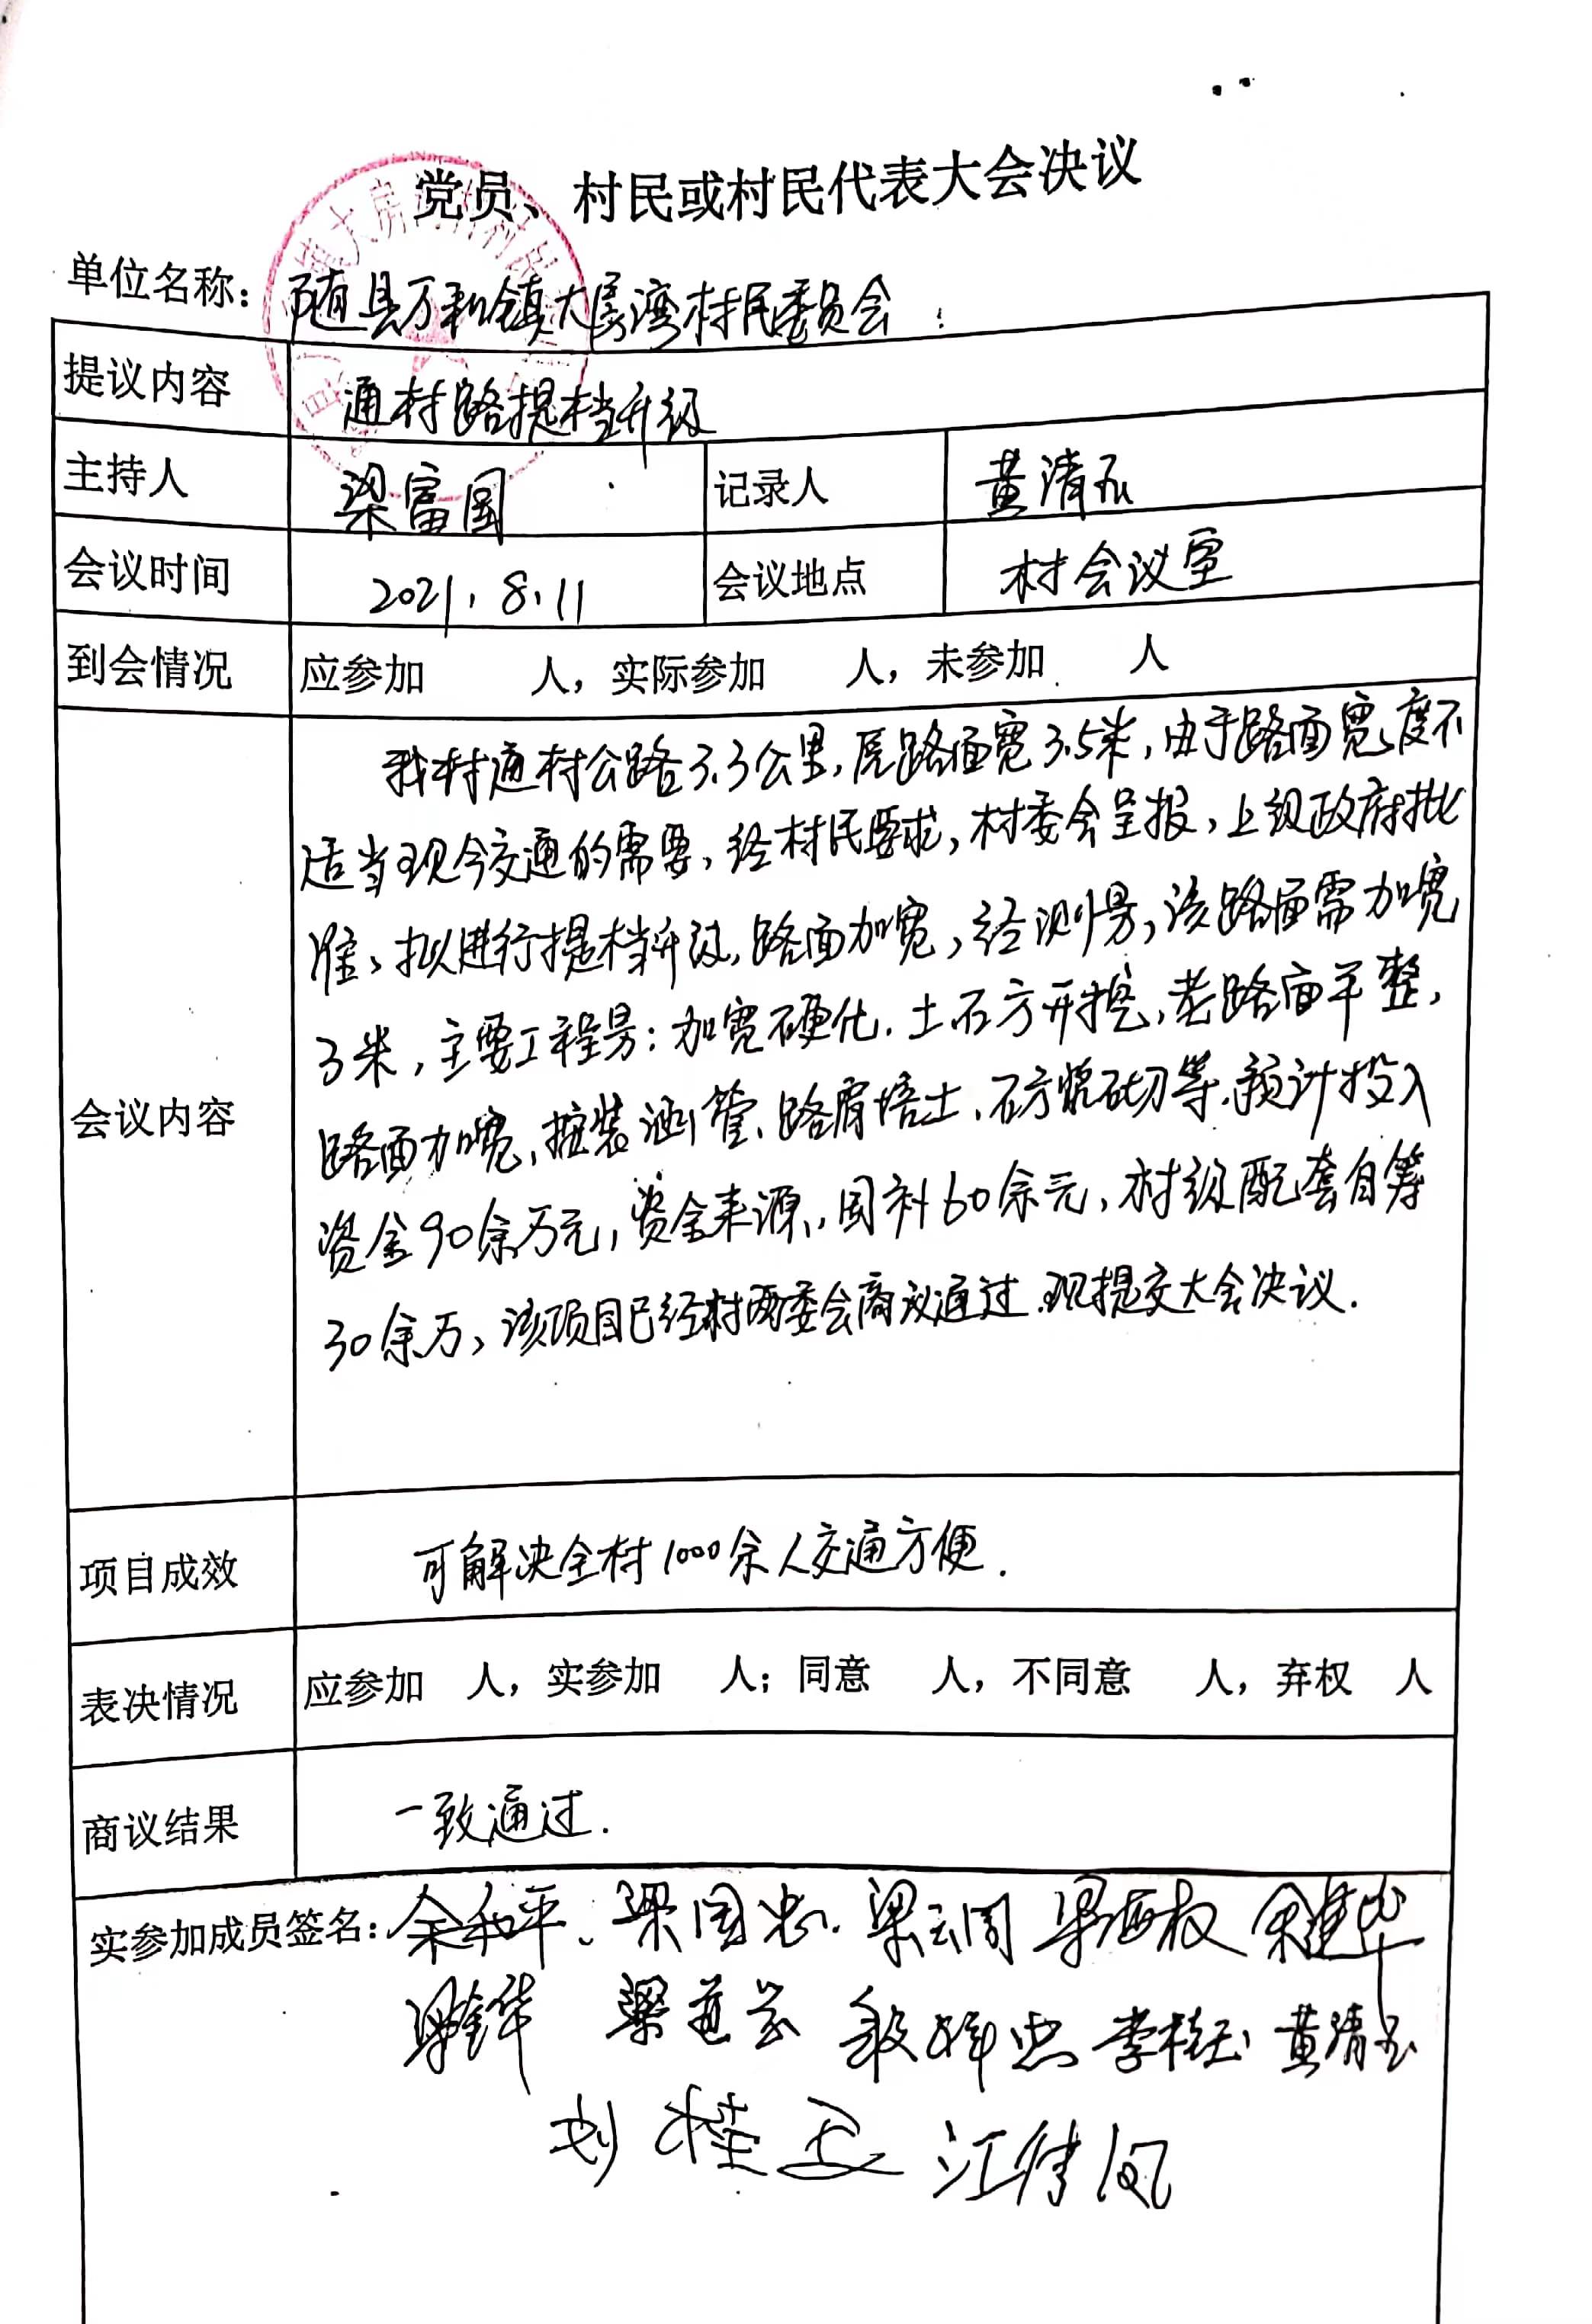 党员、村民或村民代表大会决议
单位名称：随县万和镇大房湾村民委员会
提议内容 通村路提档升级
主持人 梁富国 记录人 黄清玉
会议时间 2021.8.11 会议地点 村会议室
到会情况 应参加 人，实际参加 人，未参加 人
我村通村公路3.3公里，原路面宽3.5米，由于路面宽度不
适当现今交通的需要，经村民要求，村委会呈报，上级政府批
准，拟进行提档升级，路面加宽，经测量，该路面需加宽
3米，主要工程量：加宽硬化.土石方开挖，老路面平整，
会议内容
路面加宽、按装涵管、路肩培土、石方浆砌等.预计投入
资金90余万元，资金来源，国补60余元，村级配套自筹
30余万，该项目已经村两委会商议通过.现提交大会决议.
项目成效 可解决全村1000余人交通方便.
表决情况 应参加 人，实参加 人；同意 人，不同意 人，弃权 人
商议结果 一致通过.
实参加成员签名：余和平、梁国忠.梁云周 梁西权 余建华
梁道芸 李桂玉 黄清玉
刘桂玉 江传凤